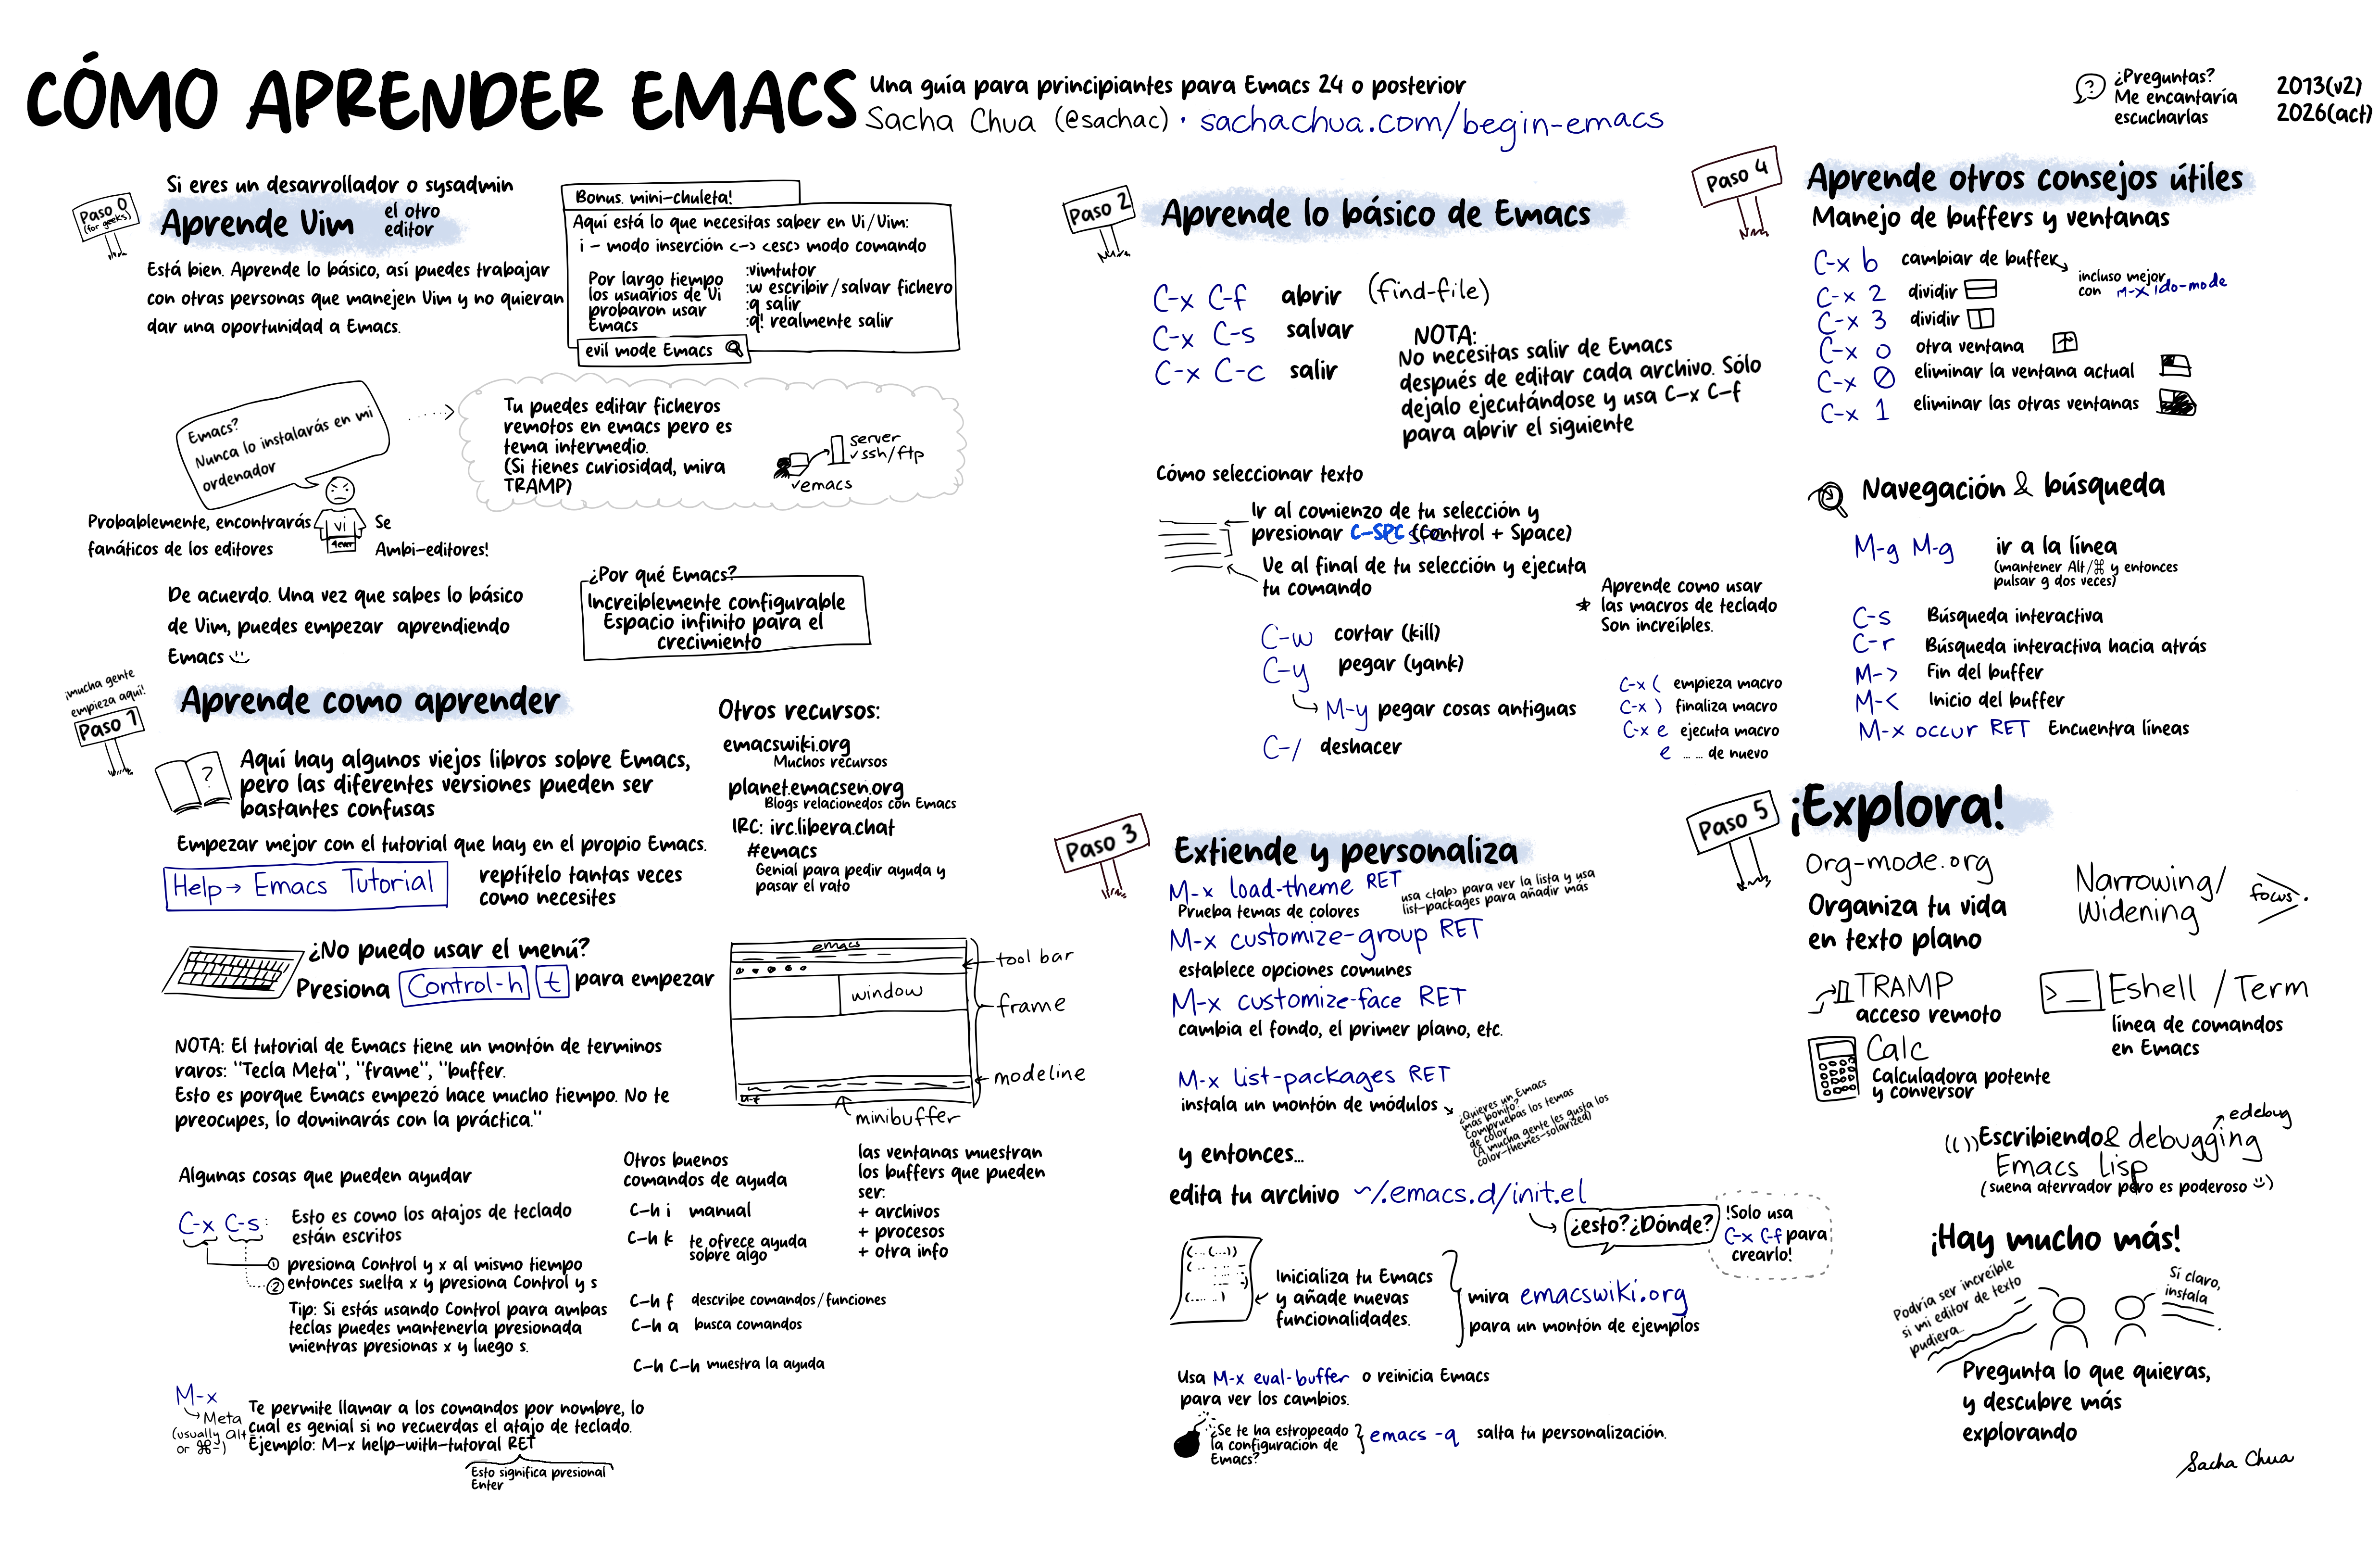 CÓMO APRENDER EMACS
Una guía para principiantes para Emacs 24 o posterior
Sacha Chua (@sachac) · sachachua.com/begin-emacs
¿Preguntas?
Me encantaría
escucharlas
2013(v2)
2026(act)
Paso 0
(for geeks)
Si eres un desarrollador o sysadmin
Aprende Vim
el otro
editor
Está bien. Aprende lo básico, así puedes trabajar
con otras personas que manejen Vim y no quieran
dar una oportunidad a Emacs.
Bonus. mini-chuleta!
Aquí está lo que necesitas saber en Vi/Vim:
i - modo inserción <-> <esc> modo comando
Por largo tiempo
los usuarios de Vi
probaron usar
Emacs
:vimtutor
:w escribir/salvar fichero
:q salir
:q! realmente salir
evil mode Emacs
Emacs?
Nunca lo instalarás en mi
ordenador
Tu puedes editar ficheros
remotos en emacs pero es
tema intermedio.
(Si tienes curiosidad, mira
TRAMP)
server
ssh/ftp
emacs
Probablemente, encontrarás
fanáticos de los editores
vi
4ever
Se
Ambi-editores!
De acuerdo. Una vez que sabes lo básico
de Vim, puedes empezar aprendiendo
Emacs
¿Por qué Emacs?
Increiblemente configurable
Espacio infinito para el
crecimiento
¡mucha gente
empieza aquí!
Paso 1
Aprende como aprender
?
Aquí hay algunos viejos libros sobre Emacs,
pero las diferentes versiones pueden ser
bastantes confusas
Empezar mejor con el tutorial que hay en el propio Emacs.
Help → Emacs Tutorial
reptítelo tantas veces
como necesites
¿No puedo usar el menú?
Presiona Control-h t para empezar
Otros recursos:
emacswiki.org
Muchos recursos
planet.emacsen.org
Blogs relacionedos con Emacs
IRC: irc.libera.chat
#emacs
Genial para pedir ayuda y
pasar el rato
emacs
window
tool bar
frame
modeline
minibuffer
NOTA: El tutorial de Emacs tiene un montón de terminos
raros: "Tecla Meta", "frame", "buffer.
Esto es porque Emacs empezó hace mucho tiempo. No te
preocupes, lo dominarás con la práctica."
Algunas cosas que pueden ayudar
C-x C-s:
Esto es como los atajos de teclado
están escritos
① presiona Control y x al mismo tiempo
② entonces suelta x y presiona Control y s
Tip: Si estás usando Control para ambas
teclas puedes mantenerla presionada
mientras presionas x y luego s.
M-x
Meta
(usually alt
or ⌘-)
Te permite llamar a los comandos por nombre, lo
cual es genial si no recuerdas el atajo de teclado.
Ejemplo: M-x help-with-tutoral RET
Esto significa presional
Enter
Otros buenos
comandos de ayuda
C-h i manual
C-h k te ofrece ayuda
sobre algo
C-h f describe comandos/funciones
C-h a busca comandos
C-h C-h muestra la ayuda
las ventanas muestran
los buffers que pueden
ser:
+ archivos
+ procesos
+ otra info
Paso 2
Aprende lo básico de Emacs
C-x C-f abrir (find-file)
C-x C-s salvar
C-x C-c salir
NOTA:
No necesitas salir de Emacs
después de editar cada archivo. Sólo
dejalo ejecutándose y usa C-x C-f
para abrir el siguiente
Cómo seleccionar texto
Ir al comienzo de tu selección y
presionar C-SPC (Control + Space)
Ve al final de tu selección y ejecuta
tu comando
C-w cortar (kill)
C-y pegar (yank)
M-y pegar cosas antiguas
C-/ deshacer
* Aprende como usar
las macros de teclado
Son increíbles.
C-x ( empieza macro
C-x ) finaliza macro
C-x e ejecuta macro
e ... ... de nuevo
Paso 3
Extiende y personaliza
M-x load-theme RET
Prueba temas de colores
usa <tab> para ver la lista y usa
list-packages para añadir más
M-x customize-group RET
establece opciones comunes
M-x customize-face RET
cambia el fondo, el primer plano, etc.
M-x list-packages RET
instala un montón de módulos
¿Quieres un Emacs
más bonito?
Compruebas los temas
de color
(A mucha gente les gusta los
color-themes-solarized)
y entonces...
edita tu archivo ~/.emacs.d/init.el
¿esto?¿Dónde?
!Solo usa
C-x C-f para
crearlo!
Inicializa tu Emacs
y añade nuevas
funcionalidades.
mira emacswiki.org
para un montón de ejemplos
Usa M-x eval-buffer o reinicia Emacs
para ver los cambios.
¿Se te ha estropeado
la configuración de
Emacs?
emacs -q salta tu personalización.
Paso 4
Aprende otros consejos útiles
Manejo de buffers y ventanas
C-x b cambiar de buffer
incluso mejor
con M-x ido-mode
C-x 2 dividir
C-x 3 dividir
C-x o otra ventana
C-x 0 eliminar la ventana actual
C-x 1 eliminar las otras ventanas
Navegación & búsqueda
M-g M-g ir a la línea
(mantener Alt/⌘ y entonces
pulsar g dos veces)
C-s Búsqueda interactiva
C-r Búsqueda interactiva hacia atrás
M-> Fin del buffer
M-< Inicio del buffer
M-x occur RET Encuentra líneas
Paso 5
¡Explora!
Org-mode.org
Organiza tu vida
en texto plano
Narrowing/
Widening
focus.
TRAMP
acceso remoto
>_
Eshell / Term
línea de comandos
en Emacs
Calc
Calculadora potente
y conversor
(()) Escribiendo & debugging
edebug
Emacs lisp
(suena aterrador pero es poderoso)
¡Hay mucho más!
Podría ser increíble
si mi editor de texto
pudiera...
Sí claro,
instala
Pregunta lo que quieras,
y descubre más
explorando
Sacha Chua